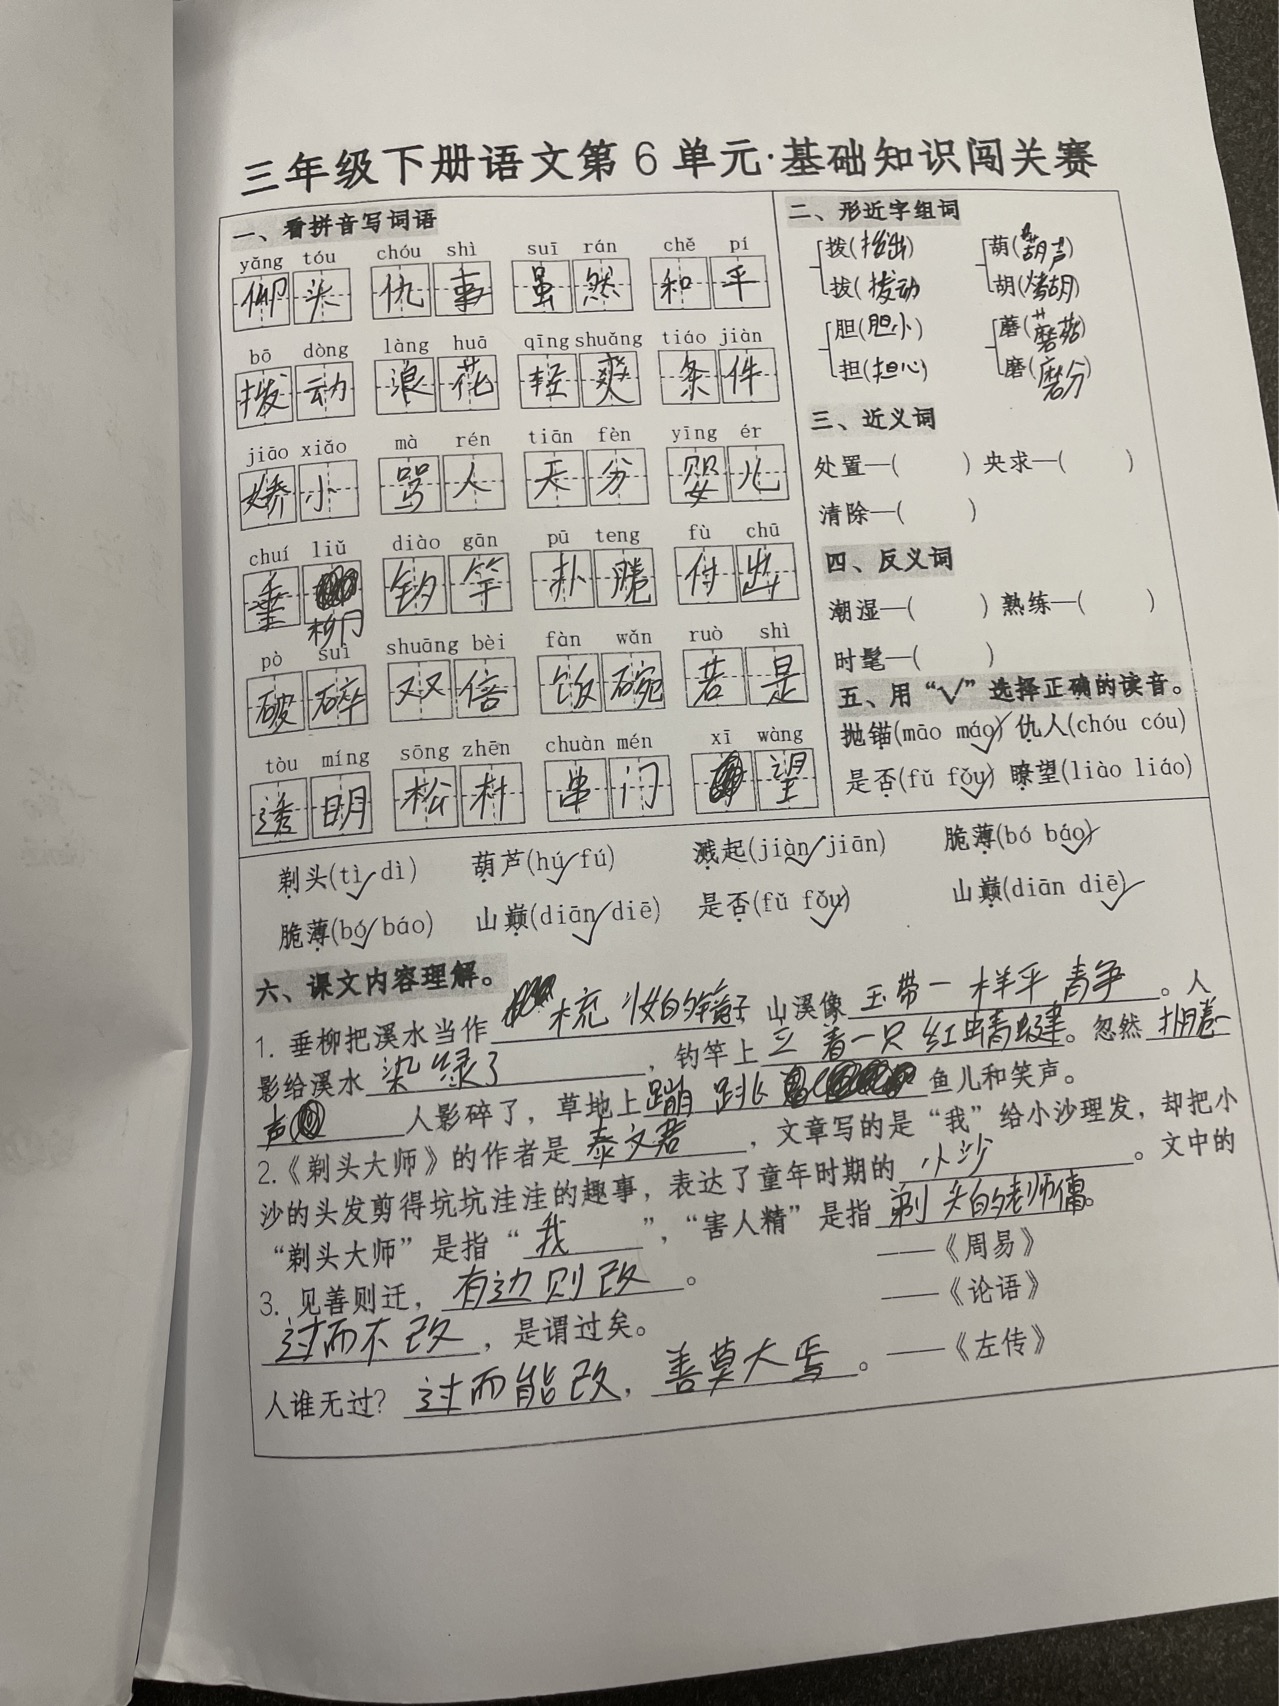 三年级下册语文第6单元·基础知识闯关赛
一、看拼音写词语
yǎng tóu chóu shì suī rán chě pí
仰头 仇事 虽然 和平
bō dòng làng huā qīng shuǎng tiáo jiàn
拨动 浪花 轻爽 条件
jiāo xiǎo mà rén tiān fèn yīng ér
娇小 骂人 天分 婴儿
chuí liǔ diào gān pū teng fù chū
垂 钓竿 扑腾 付出
柳
pò suì shuāng bèi fàn wǎn ruò shì
破碎 双倍 饭碗 若是
tòu míng sōng zhēn chuàn mén xī wàng
透明 松 串门 望
二、形近字组词
拨( ) 葫(葫芦)
拔(拨动 胡( )
胆(胆小) 蘑(蘑菇)
担(担心) 磨(磨分)
三、近义词
处置—( ) 央求—( )
清除—( )
四、反义词
潮湿—( ) 熟练—( )
时髦—( )
五、用“√”选择正确的读音。
抛锚(māo máo)✓ 仇人(chóu cóu)
是否(fǔ fǒu)✓ 瞭望(liào liáo)
剃头(tì✓ dì) 葫芦(hú✓ fú) 溅起(jiàn✓ jiān) 脆薄(bó báo)✓
脆薄(bó✓ báo) 山巅(diān✓ diē) 是否(fǔ fǒu)✓ 山巅(diān diē)✓
六、课文内容理解。
1. 垂柳把溪水当作梳妆的镜子 山溪像玉带一样平静。人
影给溪水染绿了，钓竿上立着一只红蜻蜓。忽然扑腾一
声人影碎了，草地上蹦跳鱼儿和笑声。
2.《剃头大师》的作者是秦文君，文章写的是“我”给小沙理发，却把小
沙的头发剪得坑坑洼洼的趣事，表达了童年时期的小沙。文中的
“剃头大师”是指“我”，“害人精”是指剃头的老师傅。
3. 见善则迁，有边则改。 ——《周易》
过而不改，是谓过矣。 ——《论语》
人谁无过？过而能改，善莫大焉。 ——《左传》